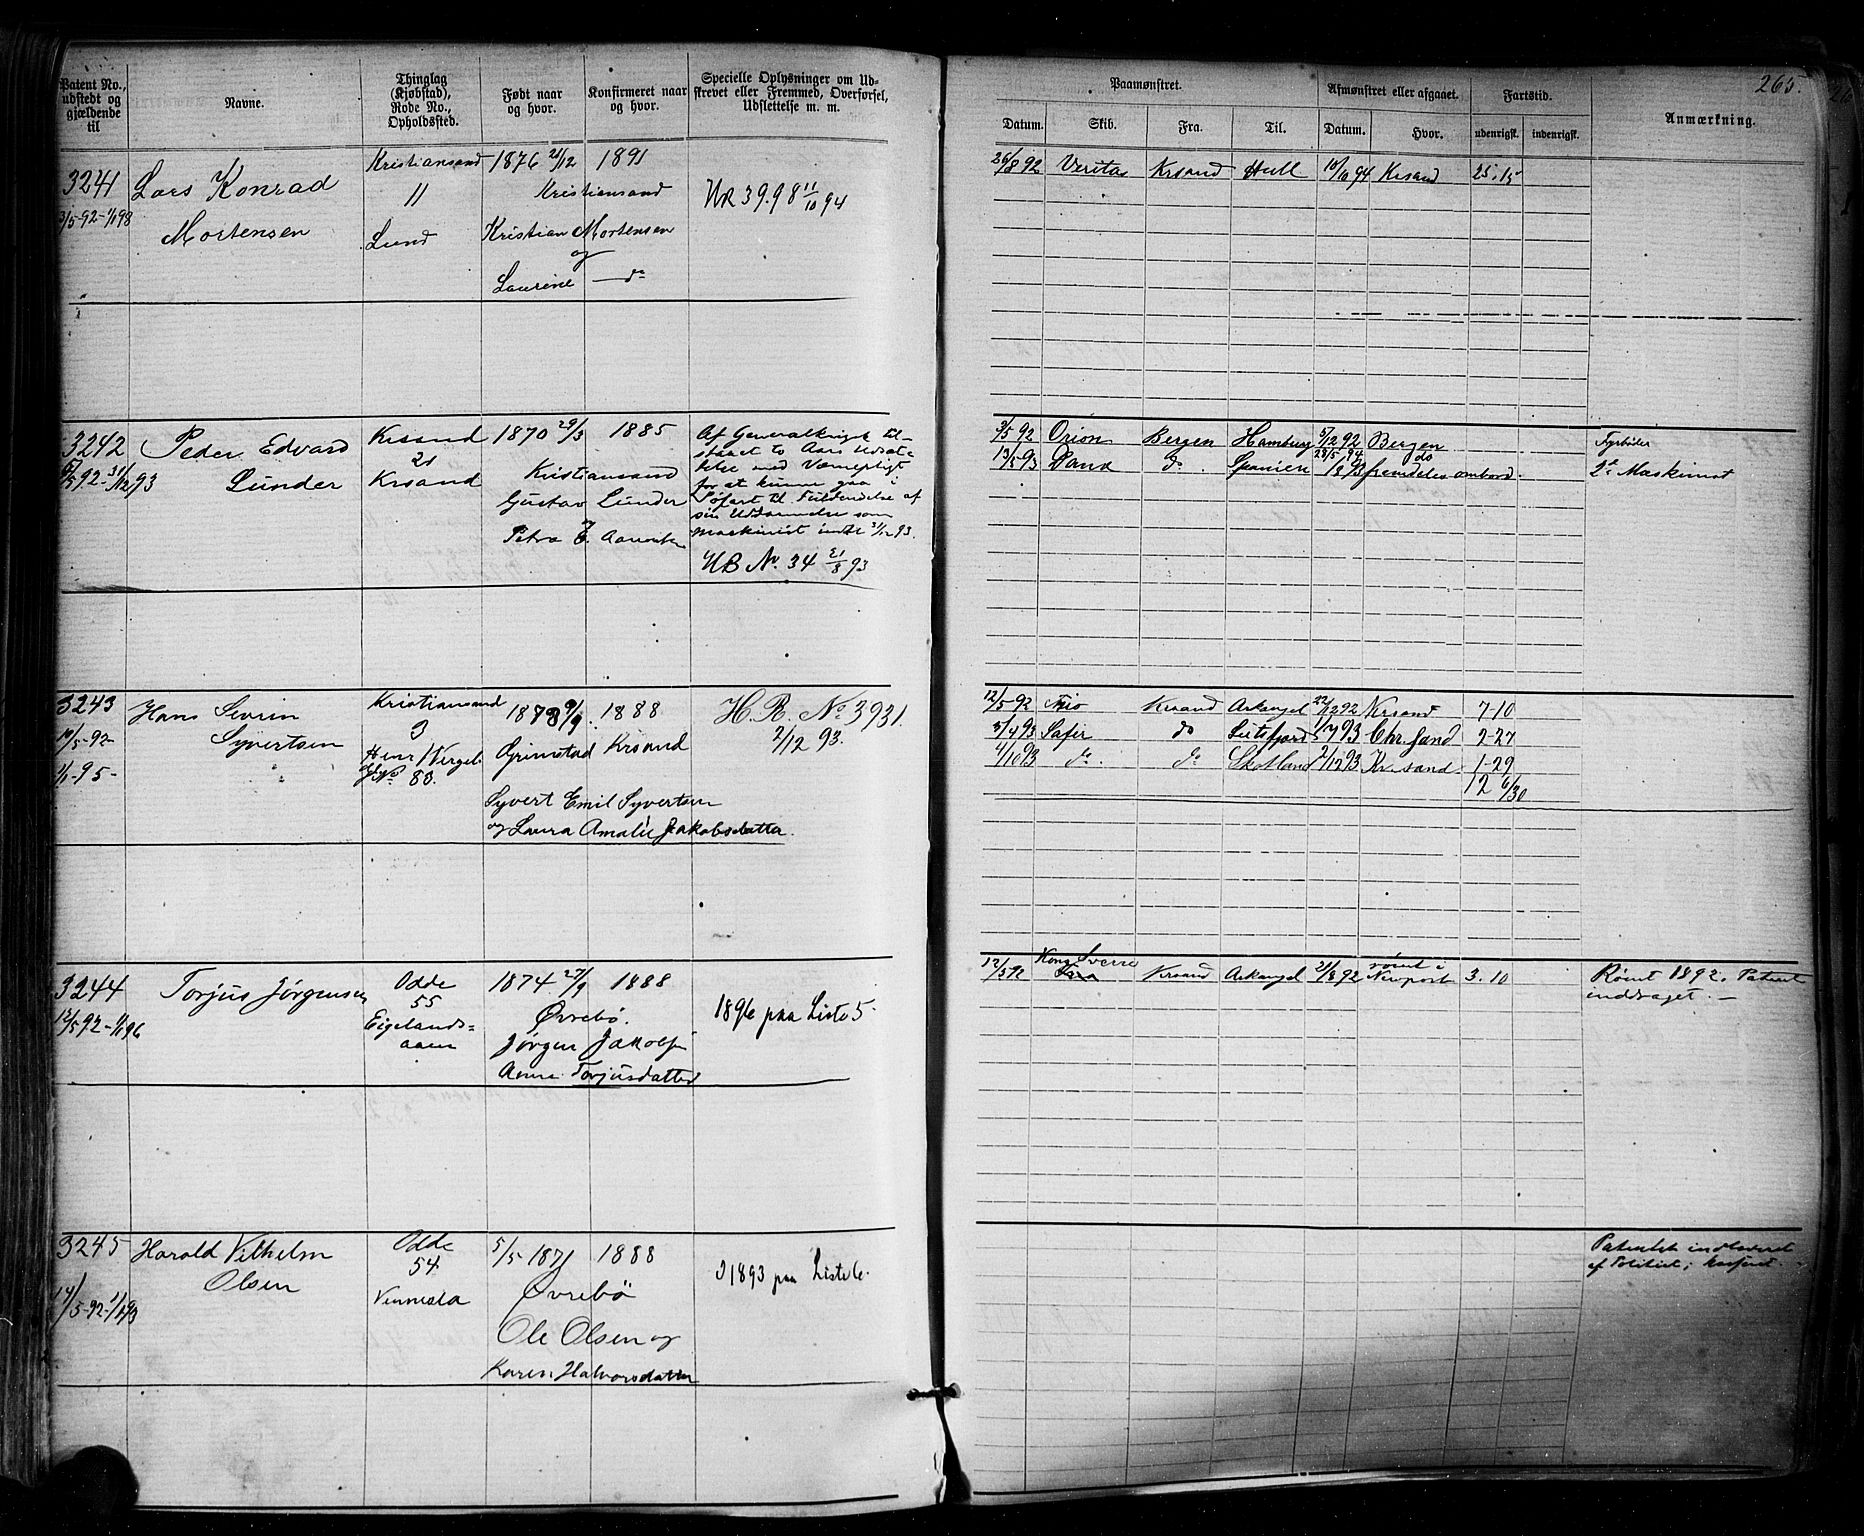 265.
Patent No., udstedt og gjældende til
Navne.
Thinglag (Kjøbstad), Rode No., Opholdssted.
Født naar og hvor.
Konfirmeret naar og hvor.
Specielle Oplysninger om Udskrevet eller Fremmed, Overførsel, Udslettelse m. m.
Paamønstret.
Datum.
Skib.
Fra.
Til.
Afmønstret eller afgaaet.
Datum.
Hvor.
Fartstid.
udenrigsk.
indenrigsk.
Anmærkning.
3241
3/5-92-1/1 98
Lars Konrad
Mortensen
Kristiansand
11
Lund
1876 21/12
1891
Kristiansand
Kristian Mortensen
og
Laurine — do
UR 39.98 11/10 94
26/8 92 Veritas Krsand Hull 10/10 94 Krsand 25.15
3242
6/5 92-31/12 93
Peder Edvard
Lunder
Krsand
21
Krsand
1870 29/3
1885
Kristiansand
Gustav Lunder
Petra E.
Af Generalkrigsk til-
staaet to Aars Udsæt-
telse med Værnepligt
for at kunne gaa i
Søfart til Fuldendelse af
sin Uddannelse som
Maskinist indtil 31/12 93.
UB No. 34 21/8 93
3/5 92 Orion Bergen Hamburg 5/12 92 Bergen Fyrbøder
13/5 93 Dana do Spanien fremdeles ombord. 2den Maskinist
3243
10/5-92-
1/1-95-
Hans Sevrin
Syvertsen
Kristiansand
3
Henr. Wergel.
Gd. No 83.
1873 9/9.
1888
Grimstad
Krsand
Syvert Emil Syvertsen
og Laura Amalie Jakobsdatter.
H. R. No 3931.
2/12 93.
12/5-92 Krsand Arkangel 22/12 92 Krsand 7-10
5/4 93 Safir do 1/7 93 Chr.sand 2-27
4/10 93 do. do Skotland 2/12 93 Kr.sand 1-29
12 6/30
3244
12/5 92-1/1 96
Torjus Jørgensen
Odde
55
Eigelands=
aaen
1874 27/9
1888
Øvrebø.
Jørgen Jakobsen
Anne Torjusdatter
1896 paa Liste 5
12/5 92 Kong Sverre Krsand Arkangel 21/8 92 rømt i Newport 3.10
Rømt 1892. Patent
inddraget. —
3245
14/5-92-1/1 93
Harald Vilhelm
Olsen
Odde
54
Vennesla
5/5 1871
1888
Øvrebø
Ole Olsen og
Karen Halvorsdatter
I 1893 paa Liste 6.
Patentet indleveret
af Politiet;